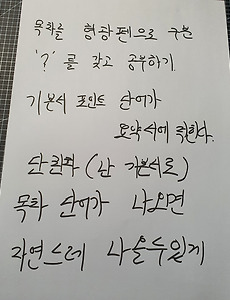 목차를 형광펜으로 구분
'?'를 갖고 공부하기.
기본서 포인트 단어가
요약서에 축약다.
단권화 (난 기본서로)
목차 단어가 나오면
자연스레 나올수있게